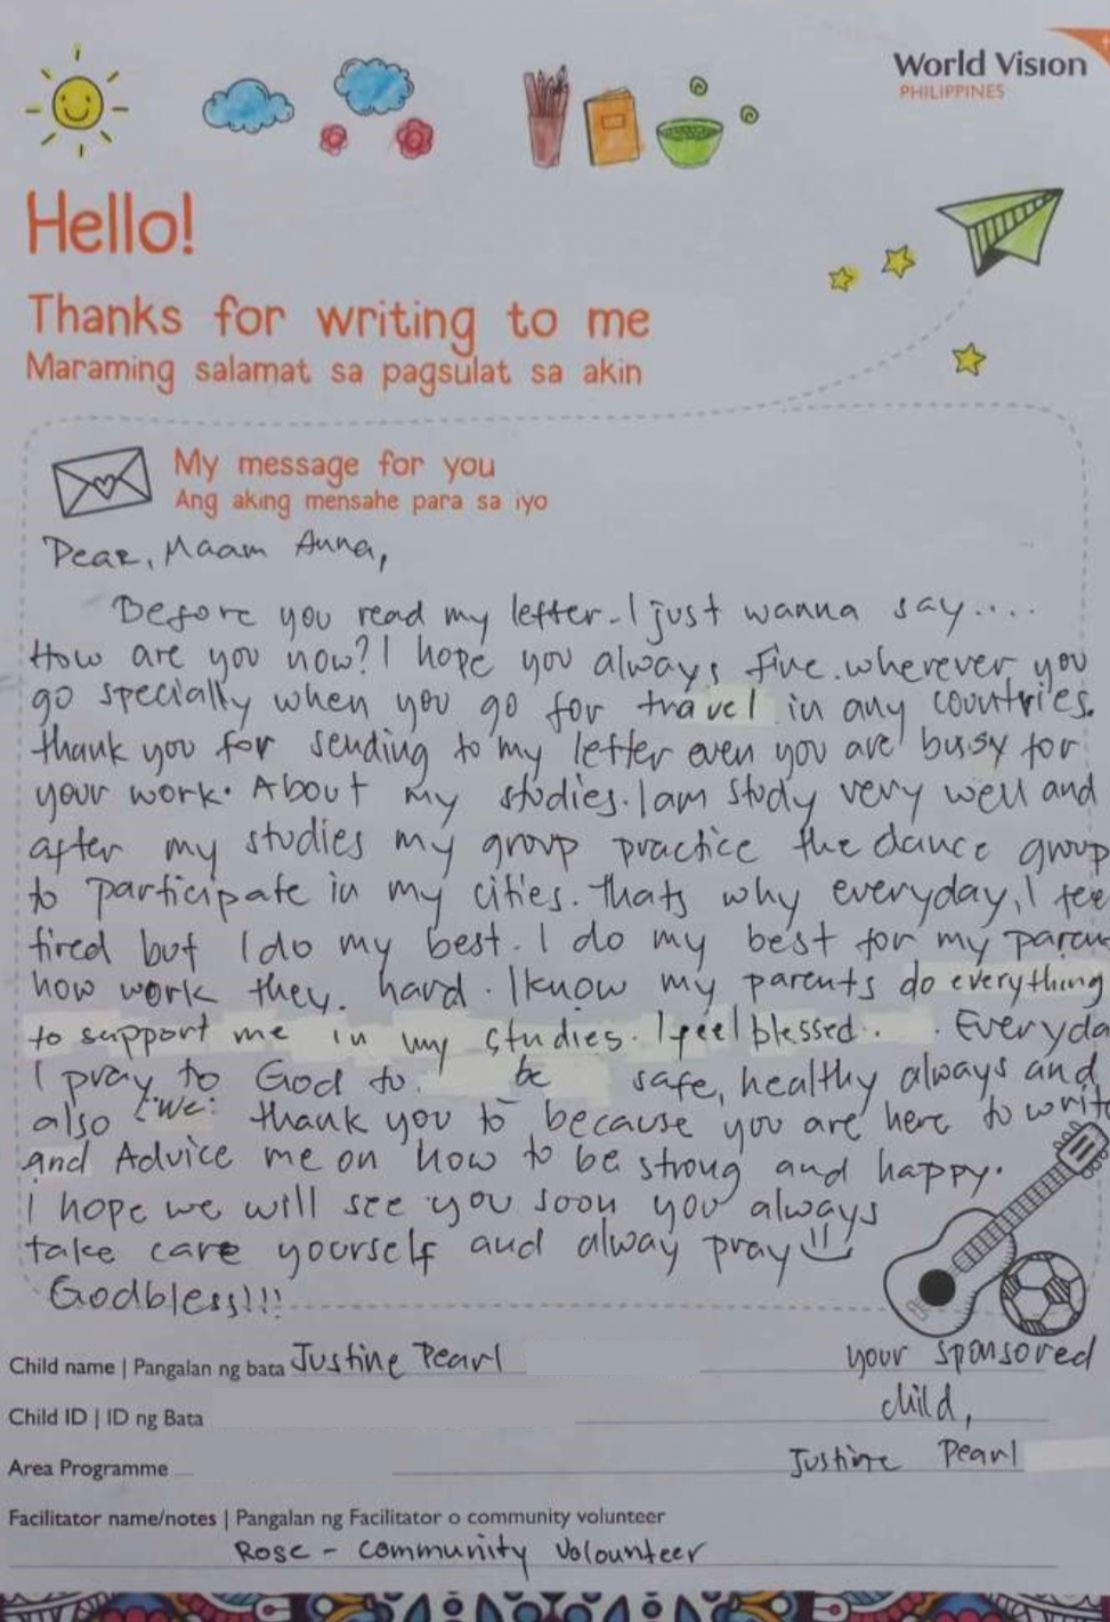 World Vision
PHILIPPINES
Hello!
Thanks for writing to me
Maraming salamat sa pagsulat sa akin
My message for you
Ang aking mensahe para sa iyo
Dear, Maam Anna,
Before you read my letter. I just wanna say....
How are you now? I hope you always fine. wherever you
go specially when you go for travel in any countries.
thank you for sending to my letter even you are busy for
your work. About my studies. I am study very well and
after my studies my group practice the dance group
to participate in my cities. thats why everyday, I fee
tired but I do my best. I do my best for my paren
how work they. hard. I know my parents do everything
to support me in my studies. I feel blessed.. . Everyda
I pray to God to. be safe, healthy always and
also we: thank you to because you are here to write
and Advice me on how to be strong and happy.
I hope we will see you soon you always
take care yourself and alway pray
Godbless!!!
Child name | Pangalan ng bata Justine Pearl
your sponsored
child,
Child ID | ID ng Bata
Justine Pearl
Area Programme
Facilitator name/notes | Pangalan ng Facilitator o community volunteer
Rose - Community Volounteer